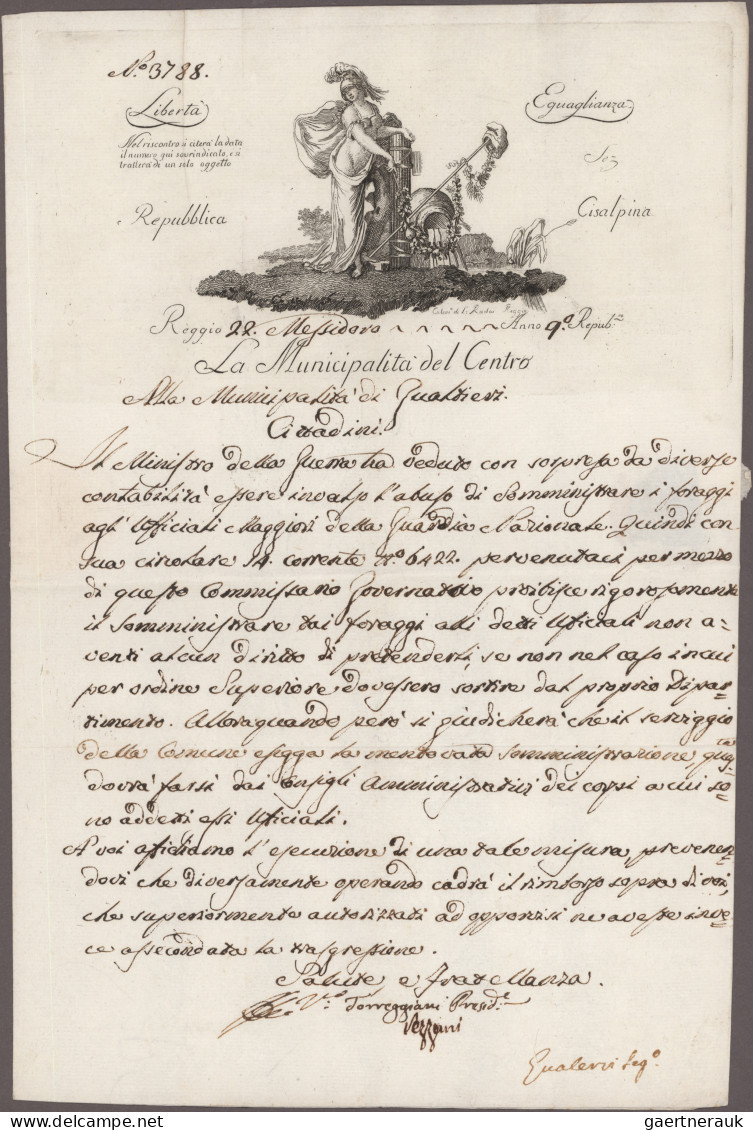 N.o 3788.
Libertà
Eguaglianza
Nel riscontro si citerà la data
il numero qui sovrindicato, e si
tratterà di un solo oggetto
Sez
Repubblica
Cisalpina
Reggio 22. Messidoro Anno 9.o Repub:na
La Municipalità del Centro
Alla Municipalità di Gualtieri.
Cittadini.
Il Ministro della Guerra ha veduto con sorpresa da diverse
contabilità essere invalso l'abuso di somministrare i foraggi
agl'Ufficiali Maggiori della Guardia Nazionale. Quindi con
sua circolare 14. corrente N.o 6422. pervenutaci per mezzo
di questo Commissario Governativo proibisce rigorosamente
il somministrare tai foraggi alli detti Uficiali non a-
venti alcun diritto di pretenderli, se non nel caso in cui
per ordine Superiore dovessero sortire dal proprio Dipar-
timento. Alloraquando però si giudicherà che il serviggio
della Comune esigga la mentovata somministrazione, q.ta
dovrà farsi dai Consigli Amministrativi dei corpi a cui so-
no addetti essi Uficiali.
A voi affidiamo l'esecuzione di una tale misura, prevenen-
dovi che diversamente operando cadrà il rimborzo sopra di voi,
che superiormente autorizzati ad opporvisi ne aveste inve-
ce assecondata la trasgressione.
Salute e Fratellanza.
Torreggiani Presid.e
Vezzani
Segr.o
gaertnerauk